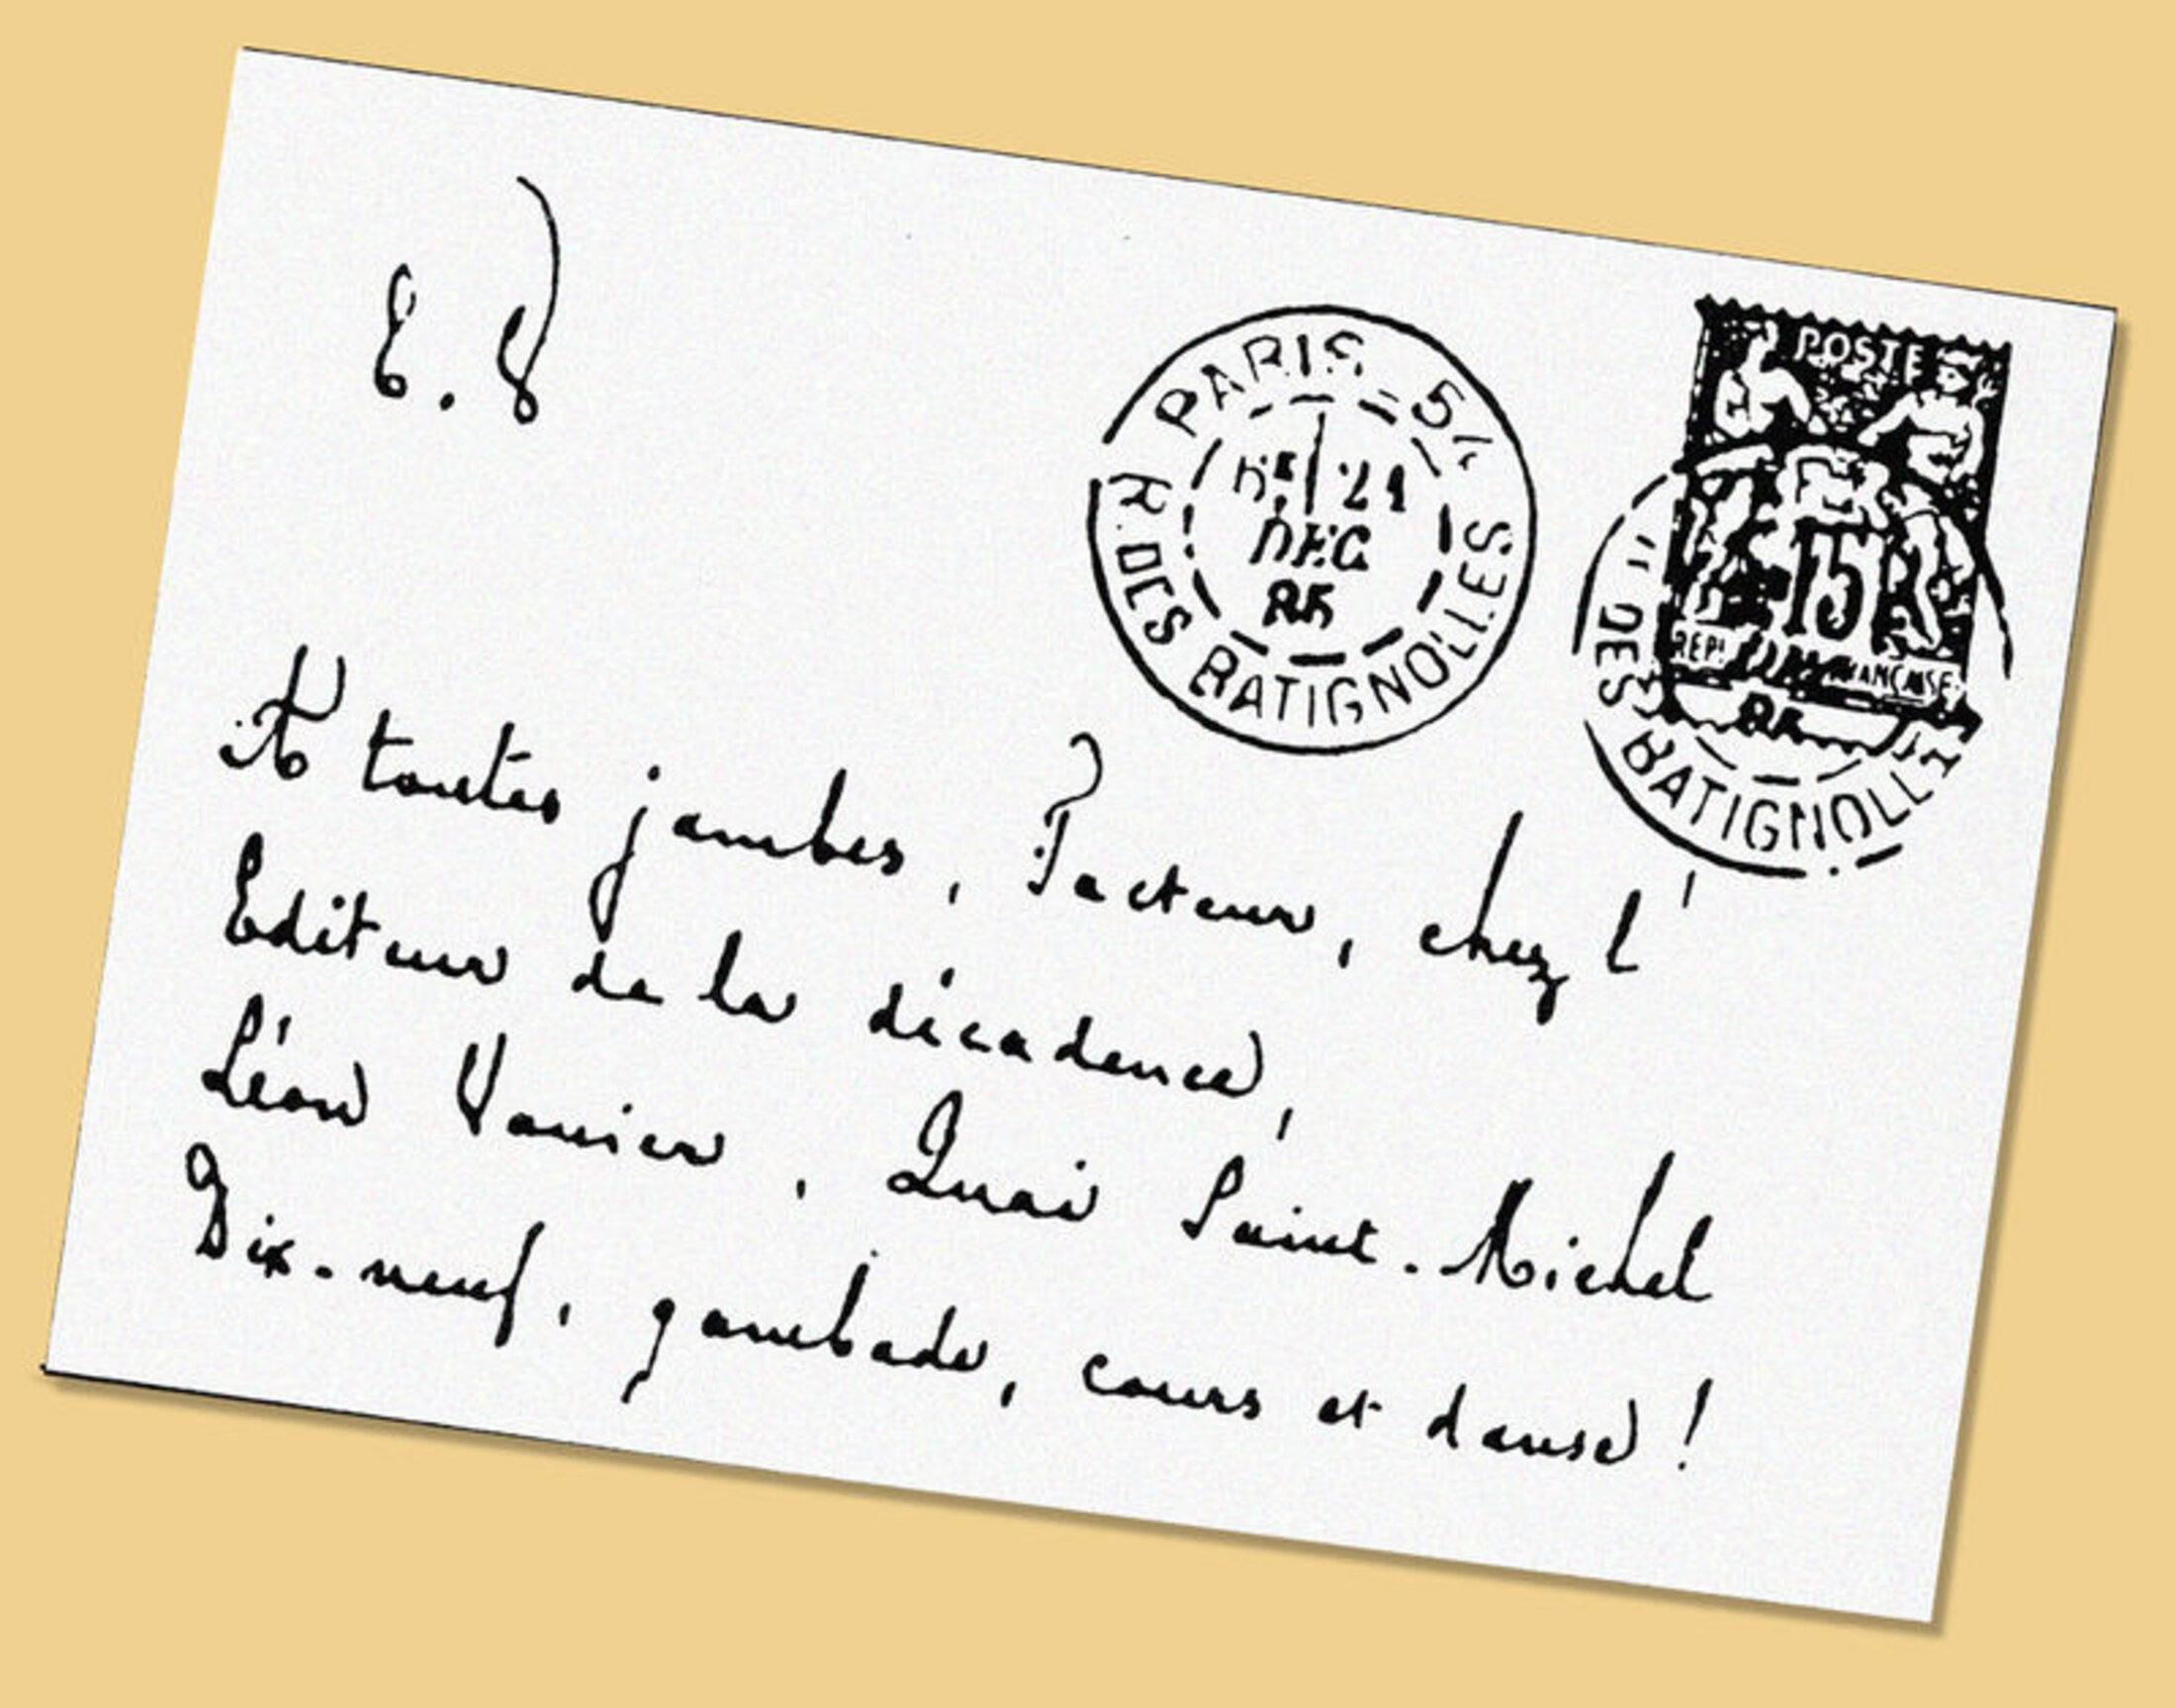 E.V
PARIS - 54
21
DEC
85
R. DES BATIGNOLLES
POSTE
15
REP. FRANÇAISE
DES BATIGNOLL
A toutes jambes, Facteur, chez l'
Editeur de la décadence,
Léon Vanier, Quai Saint-Michel
Dix-neuf, gambade, cours et danse !